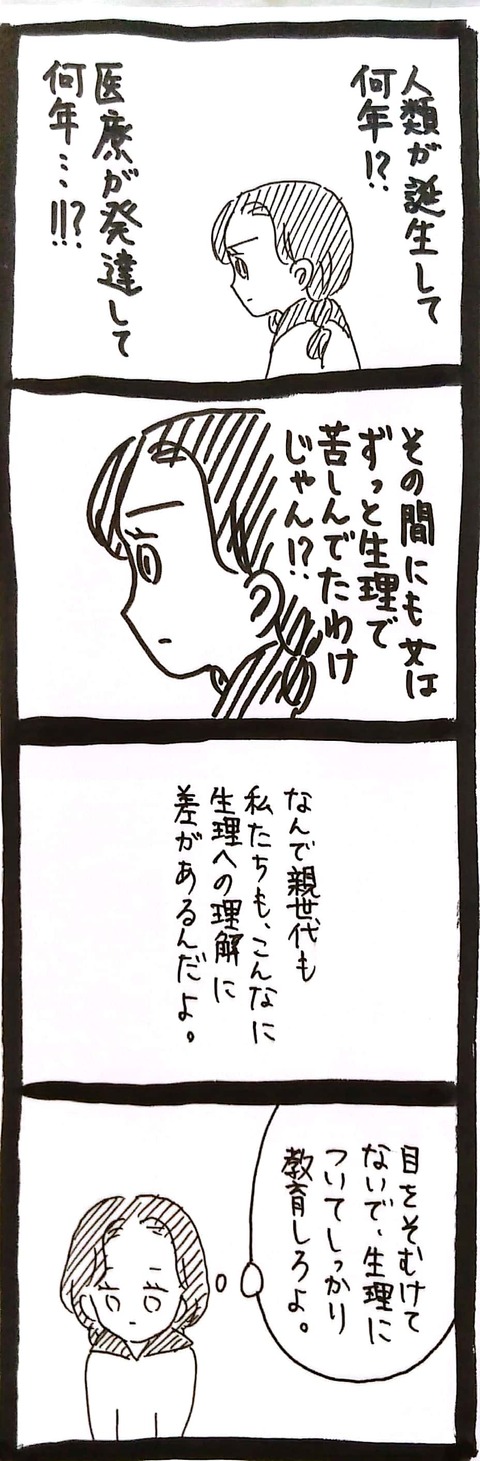 人類が誕生して
何年!?
医療が発達して
何年…!!?
その間にも女は
ずっと生理で
苦しんでたわけ
じゃん!?
なんで親世代も
私たちも、こんなに
生理への理解に
差があるんだよ。
目をそむけて
ないで、生理に
ついてしっかり
教育しろよ。